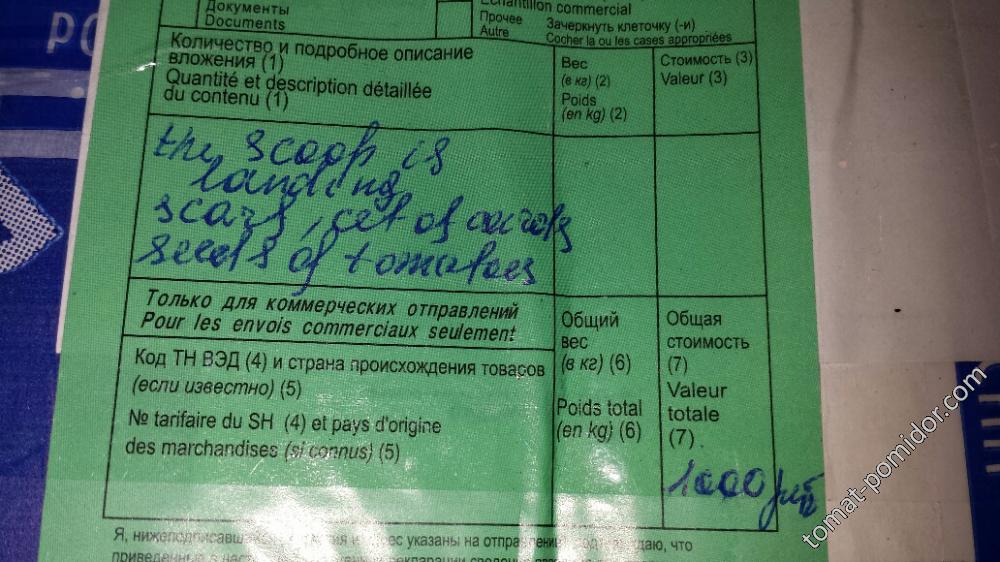 Документы
Documents
Echantillon commercial
Прочее
Autre
Зачеркнуть клеточку (-и)
Cocher la ou les cases appropriées
Количество и подробное описание
вложения (1)
Quantité et description détaillée
du contenu (1)
Вес
(в кг) (2)
Poids
(en kg) (2)
Стоимость (3)
Valeur (3)
the scoop is
landing
scarf, set of
seeds of tomatoes
Только для коммерческих отправлений
Pour les envois commerciaux seulement
Код ТН ВЭД (4) и страна происхождения товаров
(если известно) (5)
№ tarifaire du SH (4) et pays d'origine
des marchandises (si connus) (5)
Общий
вес
(в кг) (6)
Poids total
(en kg) (6)
Общая
стоимость
(7)
Valeur
totale
(7)
1000 руб
Я, указаны на что
tomat-pomidor.com